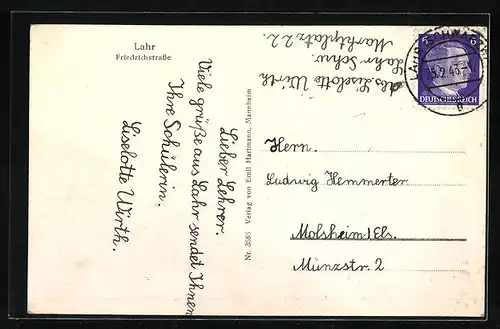 Lahr
Friedrichstraße
Lieber Lehrer.
Viele grüße aus Lahr sendet Ihnen
Ihre Schülerin.
Liselotte Wirth.
Nr. 3586 Verlag von Emil Hartmann, Mannheim
Liselotte Wirth
Lahr Schw.
Marktplatz 22.
6 6
DEUTSCHES REICH
Herrn.
Ludwig Hemmerter
Molsheim/Els.
Münzstr. 2